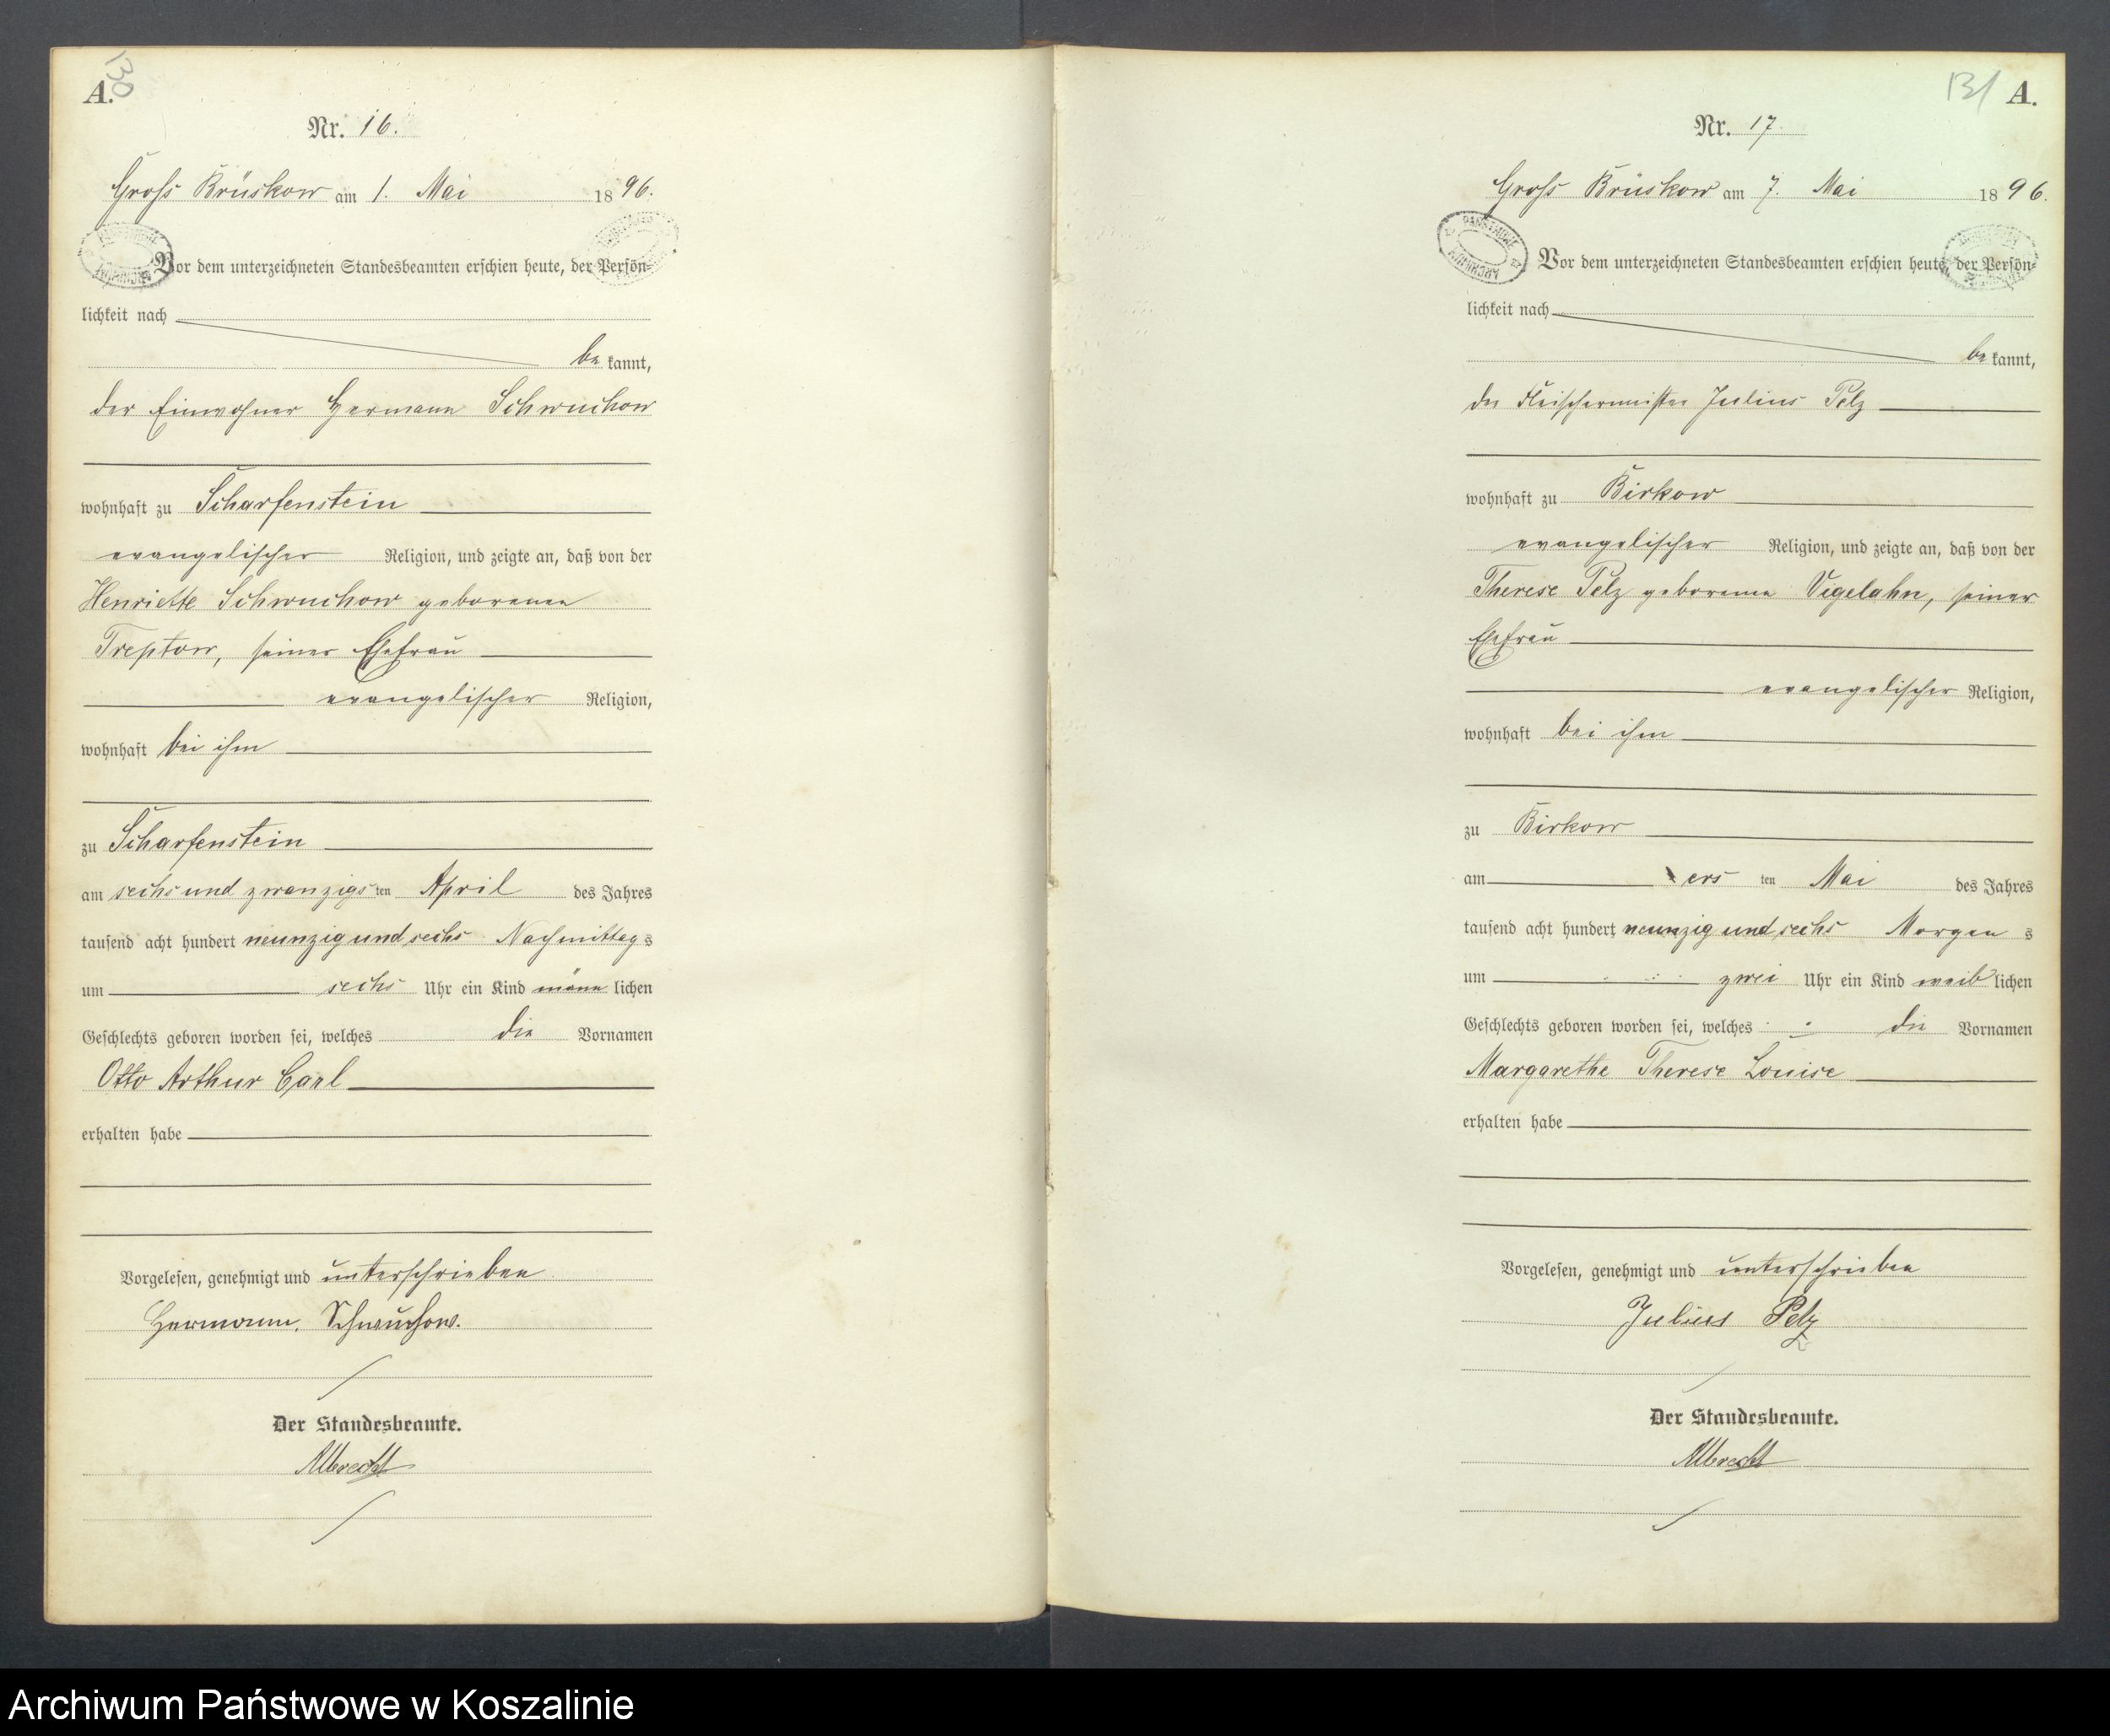 130
A.
Nr. 16.
Groß Brüskow am 1. Mai 1896.
Vor dem unterzeichneten Standesbeamten erschien heute, der Persön-
lichkeit nach
bekannt,
der Einwohner Hermann Schwuchow
wohnhaft zu Scharfenstein
evangelischer Religion, und zeigte an, daß von der
Henriette Schwuchow geborenen
Treptow, seiner Ehefrau
evangelischer Religion,
wohnhaft bei ihm
zu Scharfenstein
am sechs und zwanzigsten April des Jahres
tausend acht hundert neunzig und sechs Nachmittags
um sechs Uhr ein Kind männlichen
Geschlechts geboren worden sei, welches die Vornamen
Otto Arthur Carl
erhalten habe
Vorgelesen, genehmigt und unterschrieben
Hermann. Schwuchow.
Der Standesbeamte.
Albrecht
131
A.
Nr. 17.
Groß Brüskow am 7. Mai 1896.
PAŃSTWOWE ARCHIWUM
Vor dem unterzeichneten Standesbeamten erschien heute, der Persön-
lichkeit nach
bekannt,
der Fleischermeister Julius Pelz
wohnhaft zu Birkow
evangelischer Religion, und zeigte an, daß von der
Therese Pelz geborenen Vigelahn, seiner
Ehefrau
evangelischer Religion,
wohnhaft bei ihm
zu Birkow
am ersten Mai des Jahres
tausend acht hundert neunzig und sechs Morgens
um zwei Uhr ein Kind weiblichen
Geschlechts geboren worden sei, welches die Vornamen
Margarethe Therese Louise
erhalten habe
Vorgelesen, genehmigt und unterschrieben
Julius Pelz
Der Standesbeamte.
Albrecht
Archiwum Państwowe w Koszalinie